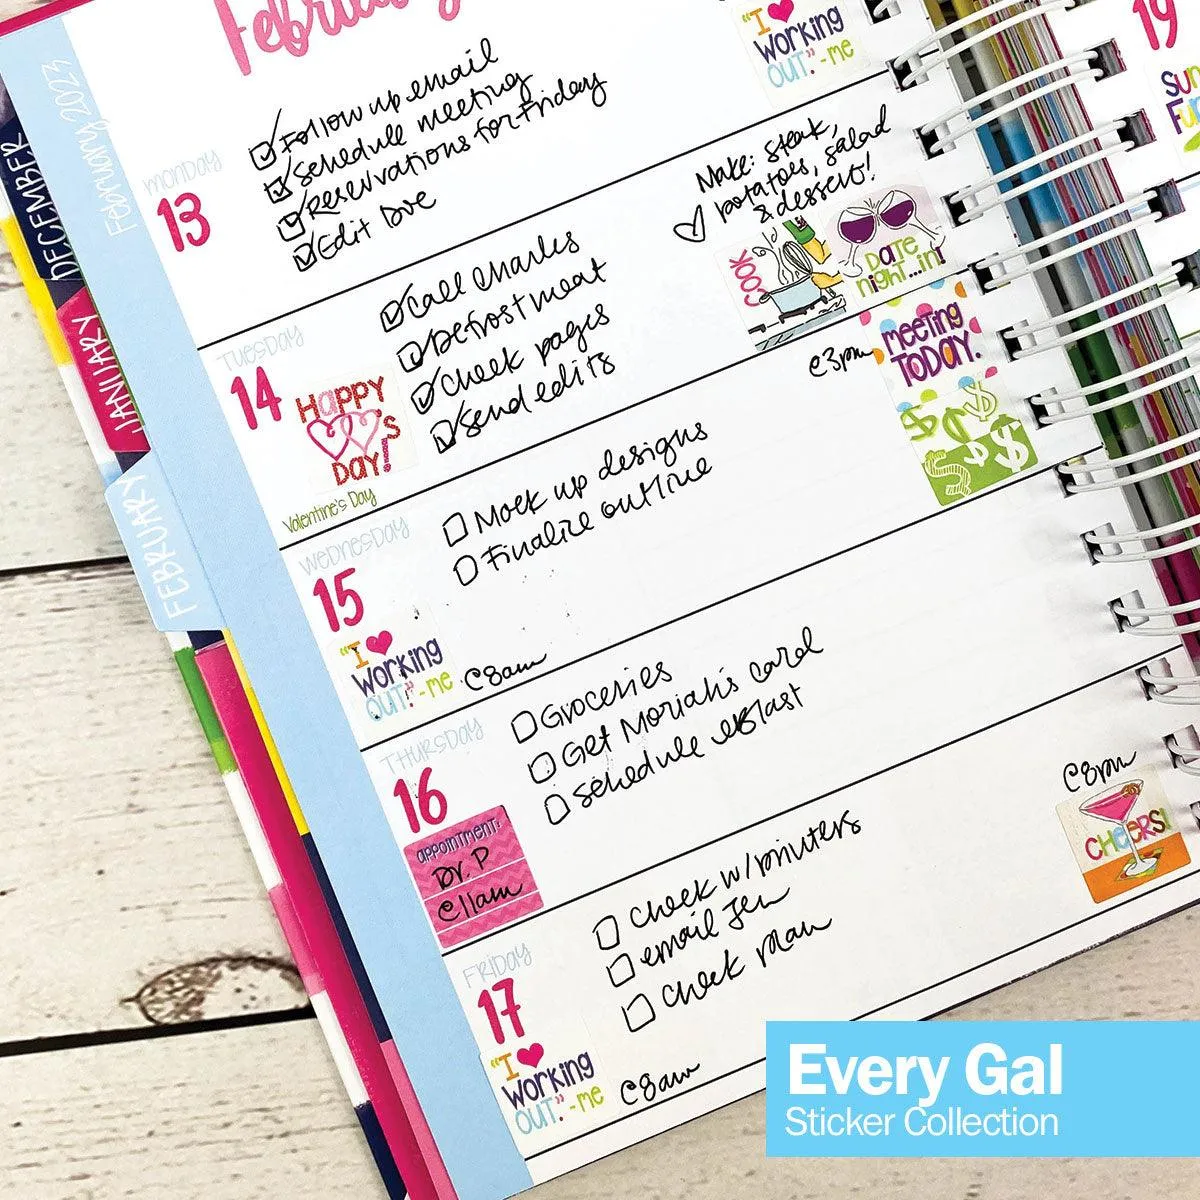 February
"I ♥
Working
OUT." -me
February 2023
DECEMBER
JANUARY
FEBRUARY
MONDAY
13
Follow up email
Schedule meeting
Reservations for Friday
Edit
Make: steak,
potatoes, salad
& dessert!
TUESDAY
14
HAPPY
♥'S
DAY!
Valentine's Day
Call Charles
Defrost meat
Check pages
Send edits
COOK
DATE
night...in!
WEDNESDAY
15
Mock up designs
Finalize outline
@3pm
meeting
TODAY.
$ $ $
$ $
"I ♥
Working
OUT!" -me
@8am
THURSDAY
16
Groceries
Get Moriah's card
Schedule eBlast
appointment:
Dr. P
@11am
FRIDAY
17
Check w/printers
email Jen
Check
@8pm
CHEERS!
"I ♥
Working
OUT." -me
@8am
19
SUN
Fun
Every Gal
Sticker Collection